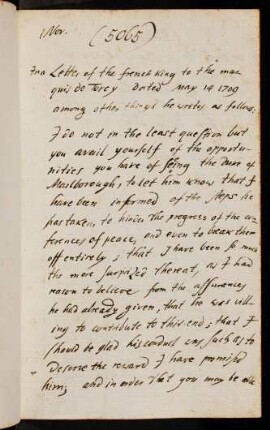 1 Nov.
(5065)
In a Letter of the french King to the mar
quis de Torcy dated may 14 1709
among other things he writes as follows.
I do not in the least question but
you avail yourself of the opportu-
nities you have of seing the Duke of
Marlborough, to let him know that I
have been informed of the steps he
has taken, to hinder the progress of the con
ferences of peace, and even to break them
off entirely; that I have been so much
the more surprized thereat, as I had
reason to believe from the assurances
he had already given, that he was will-
ing to contribute to this end; that I
should be glad his conduct was such as to
deserve the reward I have promised
him; and in order that you may be able